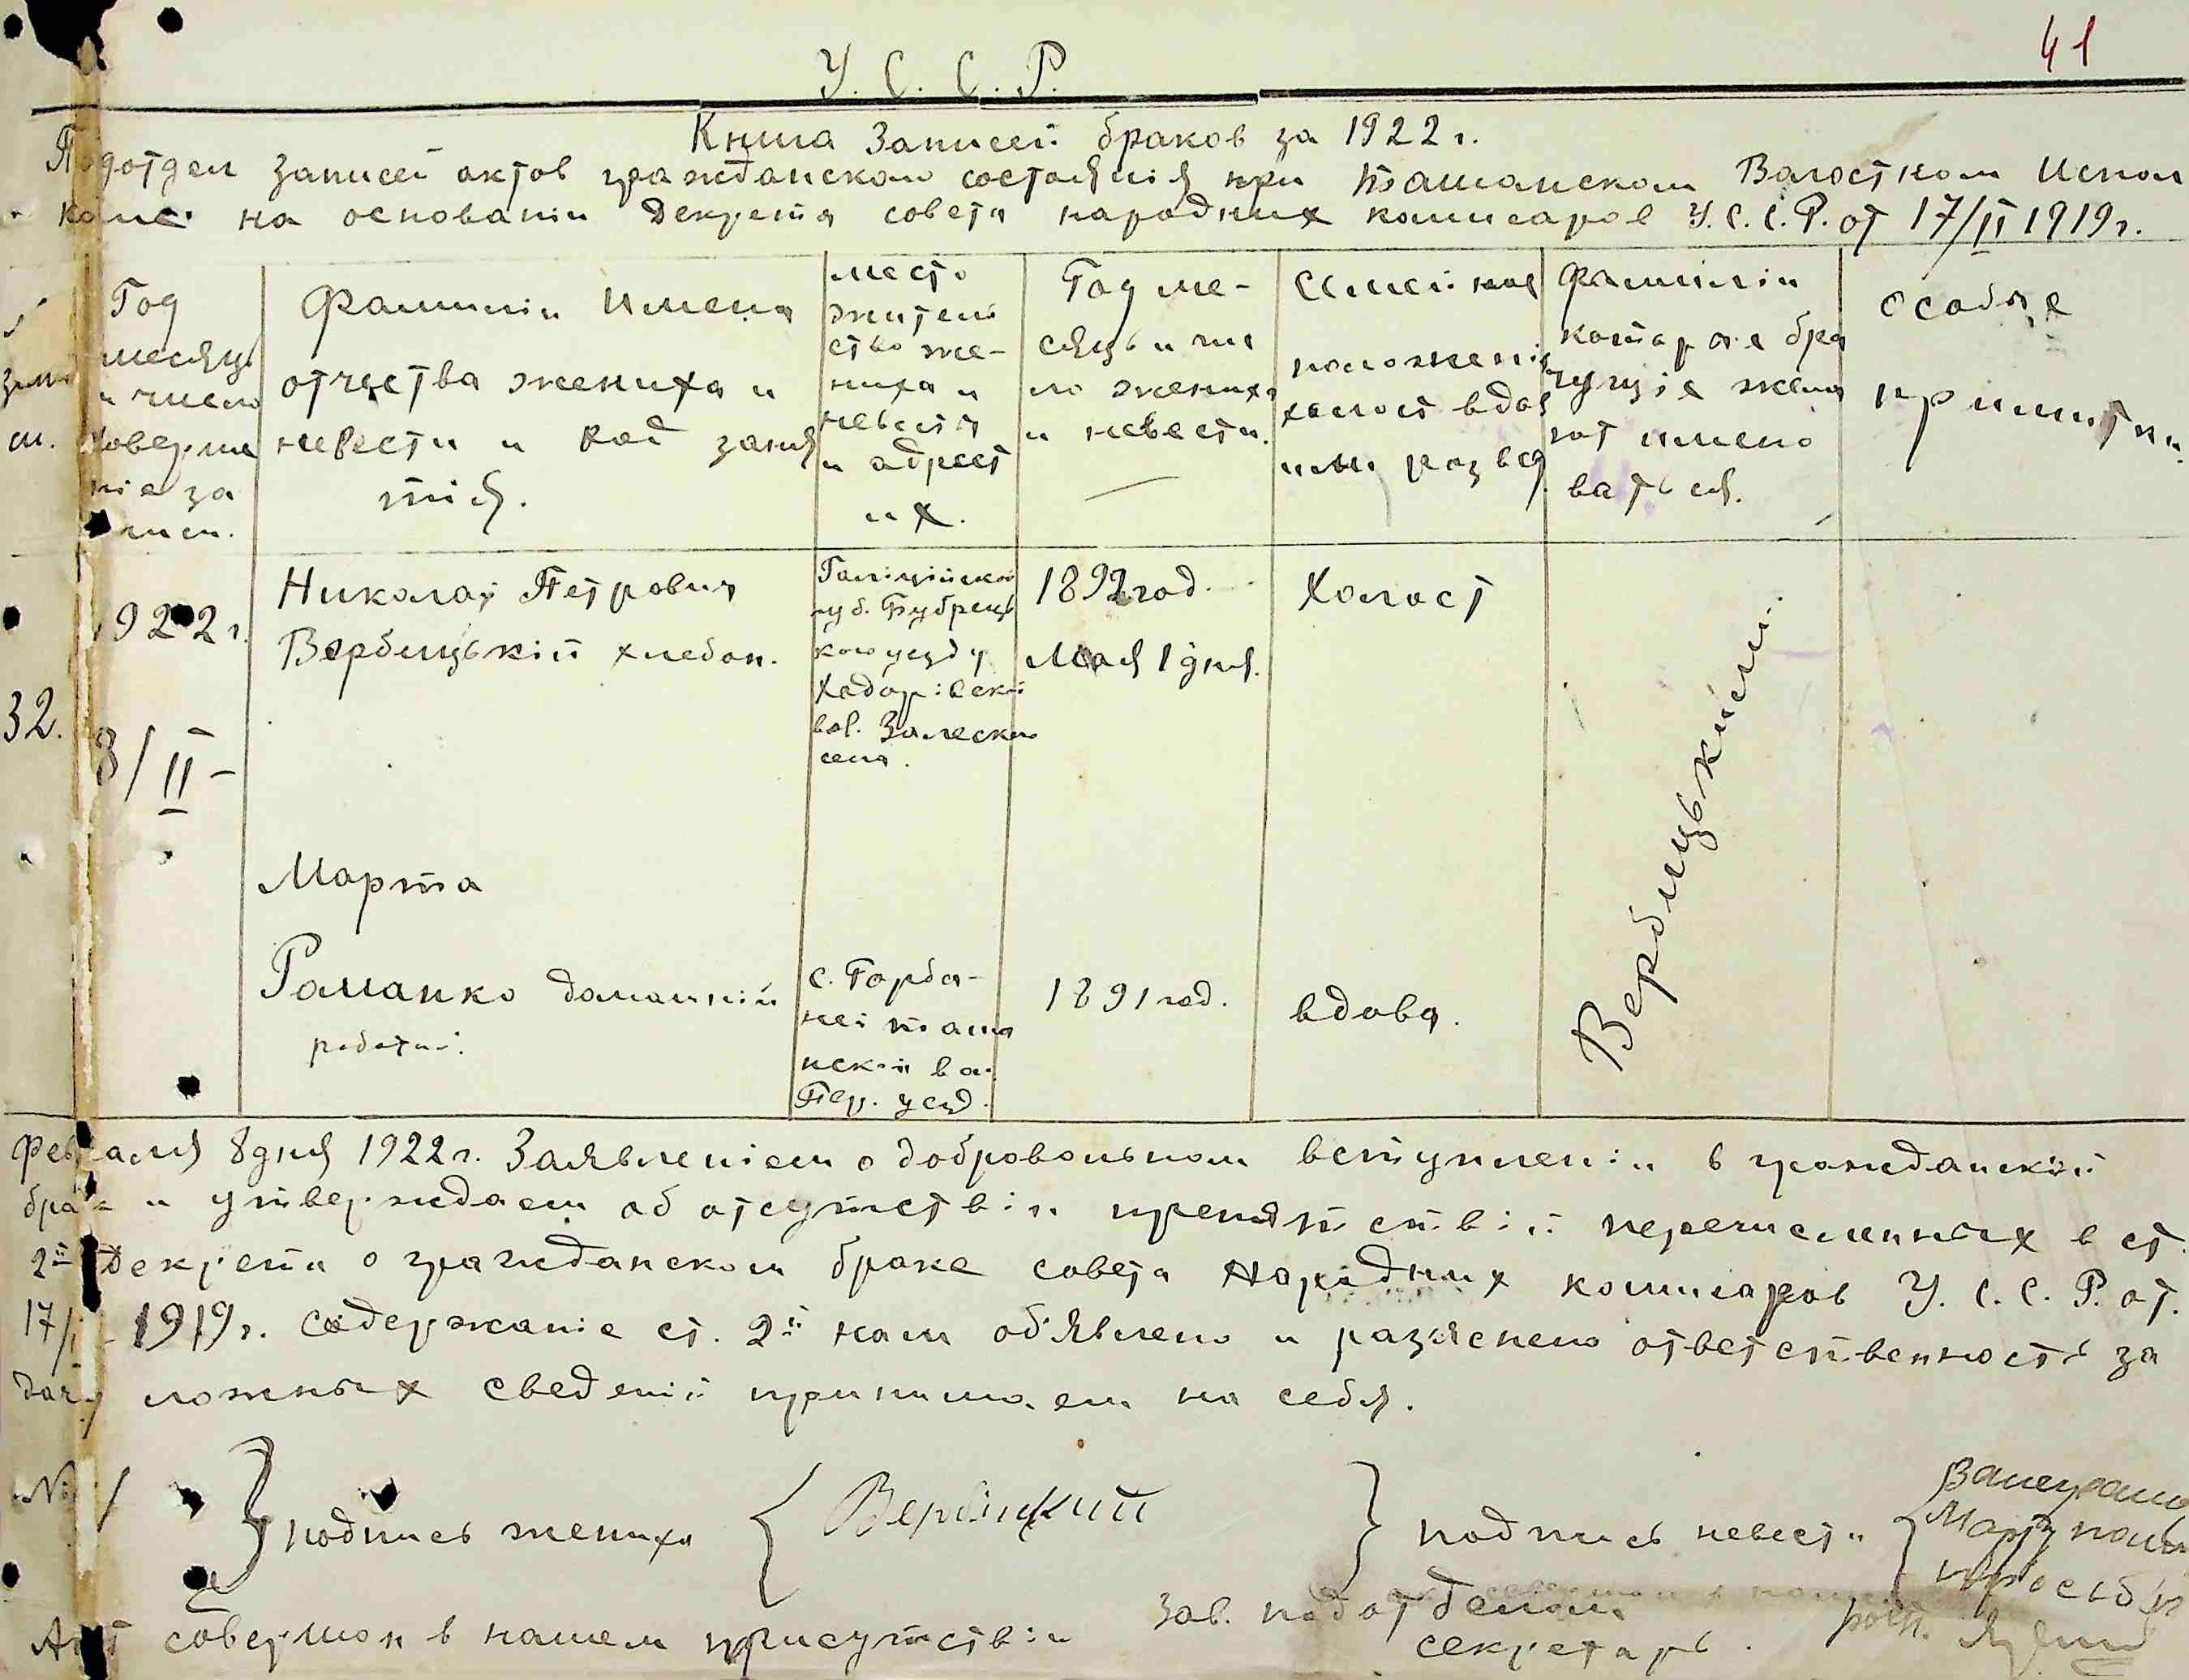 41
У. С. С. Р.
Книга Записей браков за 1922 г.
Подотдел записей актов гражданского состояния при Ташанском Волостном Испол
коме на основаніи Декрета совета народных комисаров У.С.С.Р. от 17/II 1919 г.
Год
месяць
и число
соверше
ніе за
писи.
Фамиліи Имена
отчества жениха и
невести и род заня
тія.
место
житель
ство же-
ниха и
невести
и адрест
их.
Год ме-
сяць и чис
ло жениха
и невести.
Семейное
положеніе
холост вдов
или развед
Фаміліи
которые бра
чущіе жела
ют имено
ваться.
особые
приметки.
32.
1922 г.
8/II-
Николай Петрович
Вербицькій хлебоп.
Галиційской
губ. Бубрець
кого уезду
Ходорівской
вол. Залеского
села.
1892 год.
Мая 1 дня.
Холост
Вербицькіеми.
Марта
Романко домашній
работи.
с. Горба-
ней таша
нской во.
Пер. уезд.
1891 год.
вдова.
Февраля 8 дня 1922 г. Заявленіем о добровольном вступленіи в гражданскій
брак и утверждаем об отсутствіи препятствій перечисленных в ст.
2й Декрета о гражданском браке совета Народних комисаров У. С. С. Р. от.
17/II - 1919 г. содержание ст. 2й нам об'явлено и раз'яснено ответственность за
дачу ложных сведеній принимаем на себя.
№ 1 } подпись жениха { Вербіцкий } подпись невести {
Марту
просьбе
Акт совершон в нашем присутствіи
Зав. подотделом
секретарь.